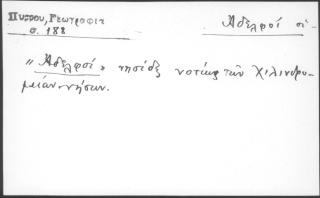 Πύρρου, Γεωγραφία
σ. 188
Ἀδελφοί οἱ-
"Ἀδελφοί" νησίδες νοτίως τῶν Χιλινδρο-
μίων νήσων.